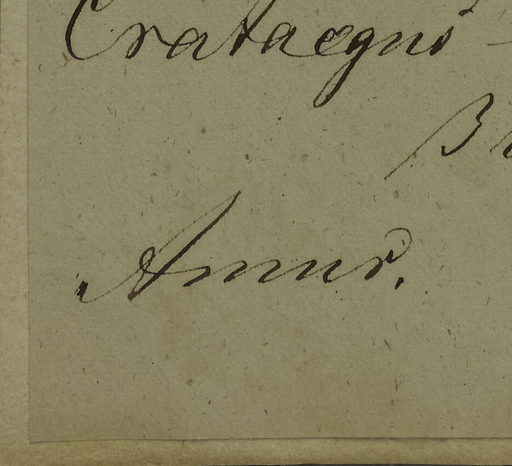 Crataegus
β
Amur.